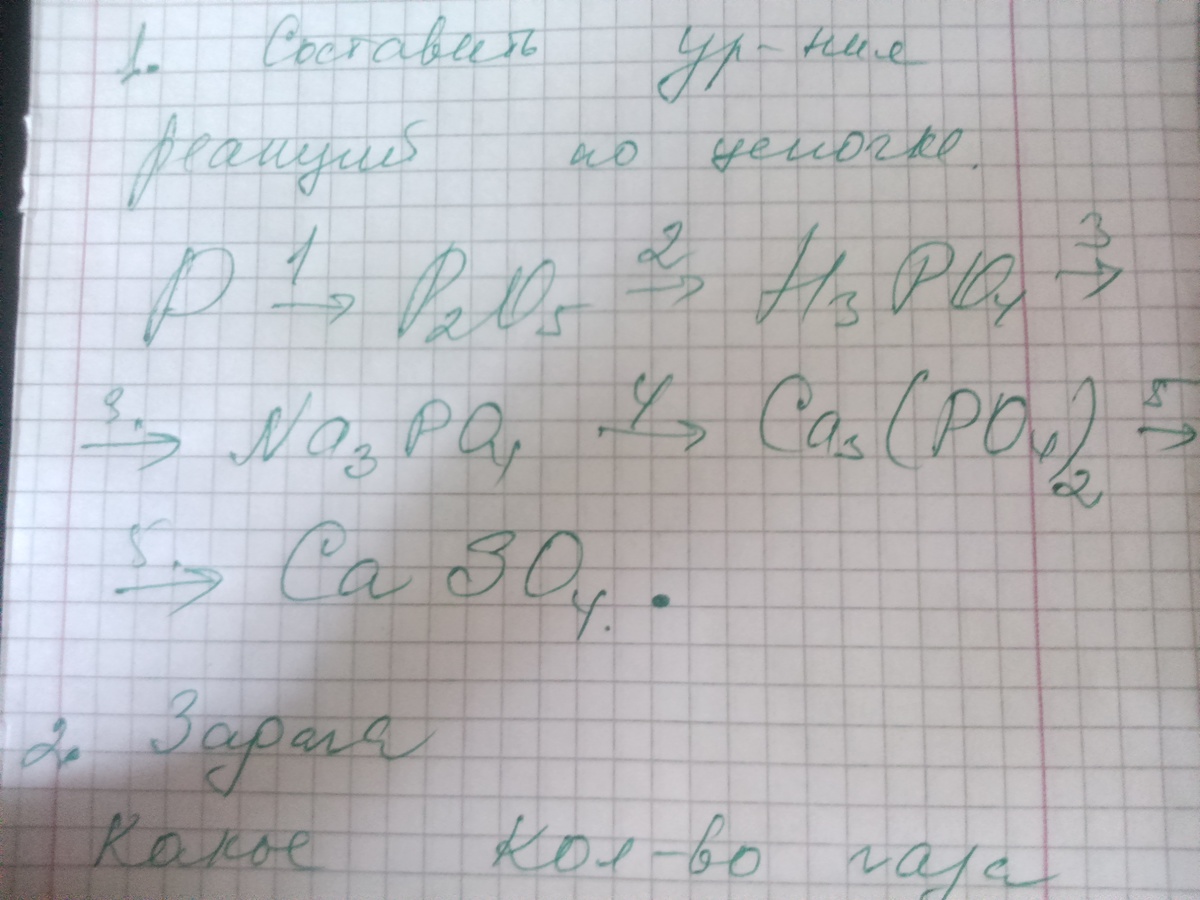 1. Составить ур-ния
реакций по цепочке.
P 1→ P₂O₅ 2→ H₃PO₄ 3→
3.→ Na₃PO₄ 4→ Ca₃(PO₄)₂ 5→
5.→ CaSO₄.
2. Задача
Какое кол-во газа